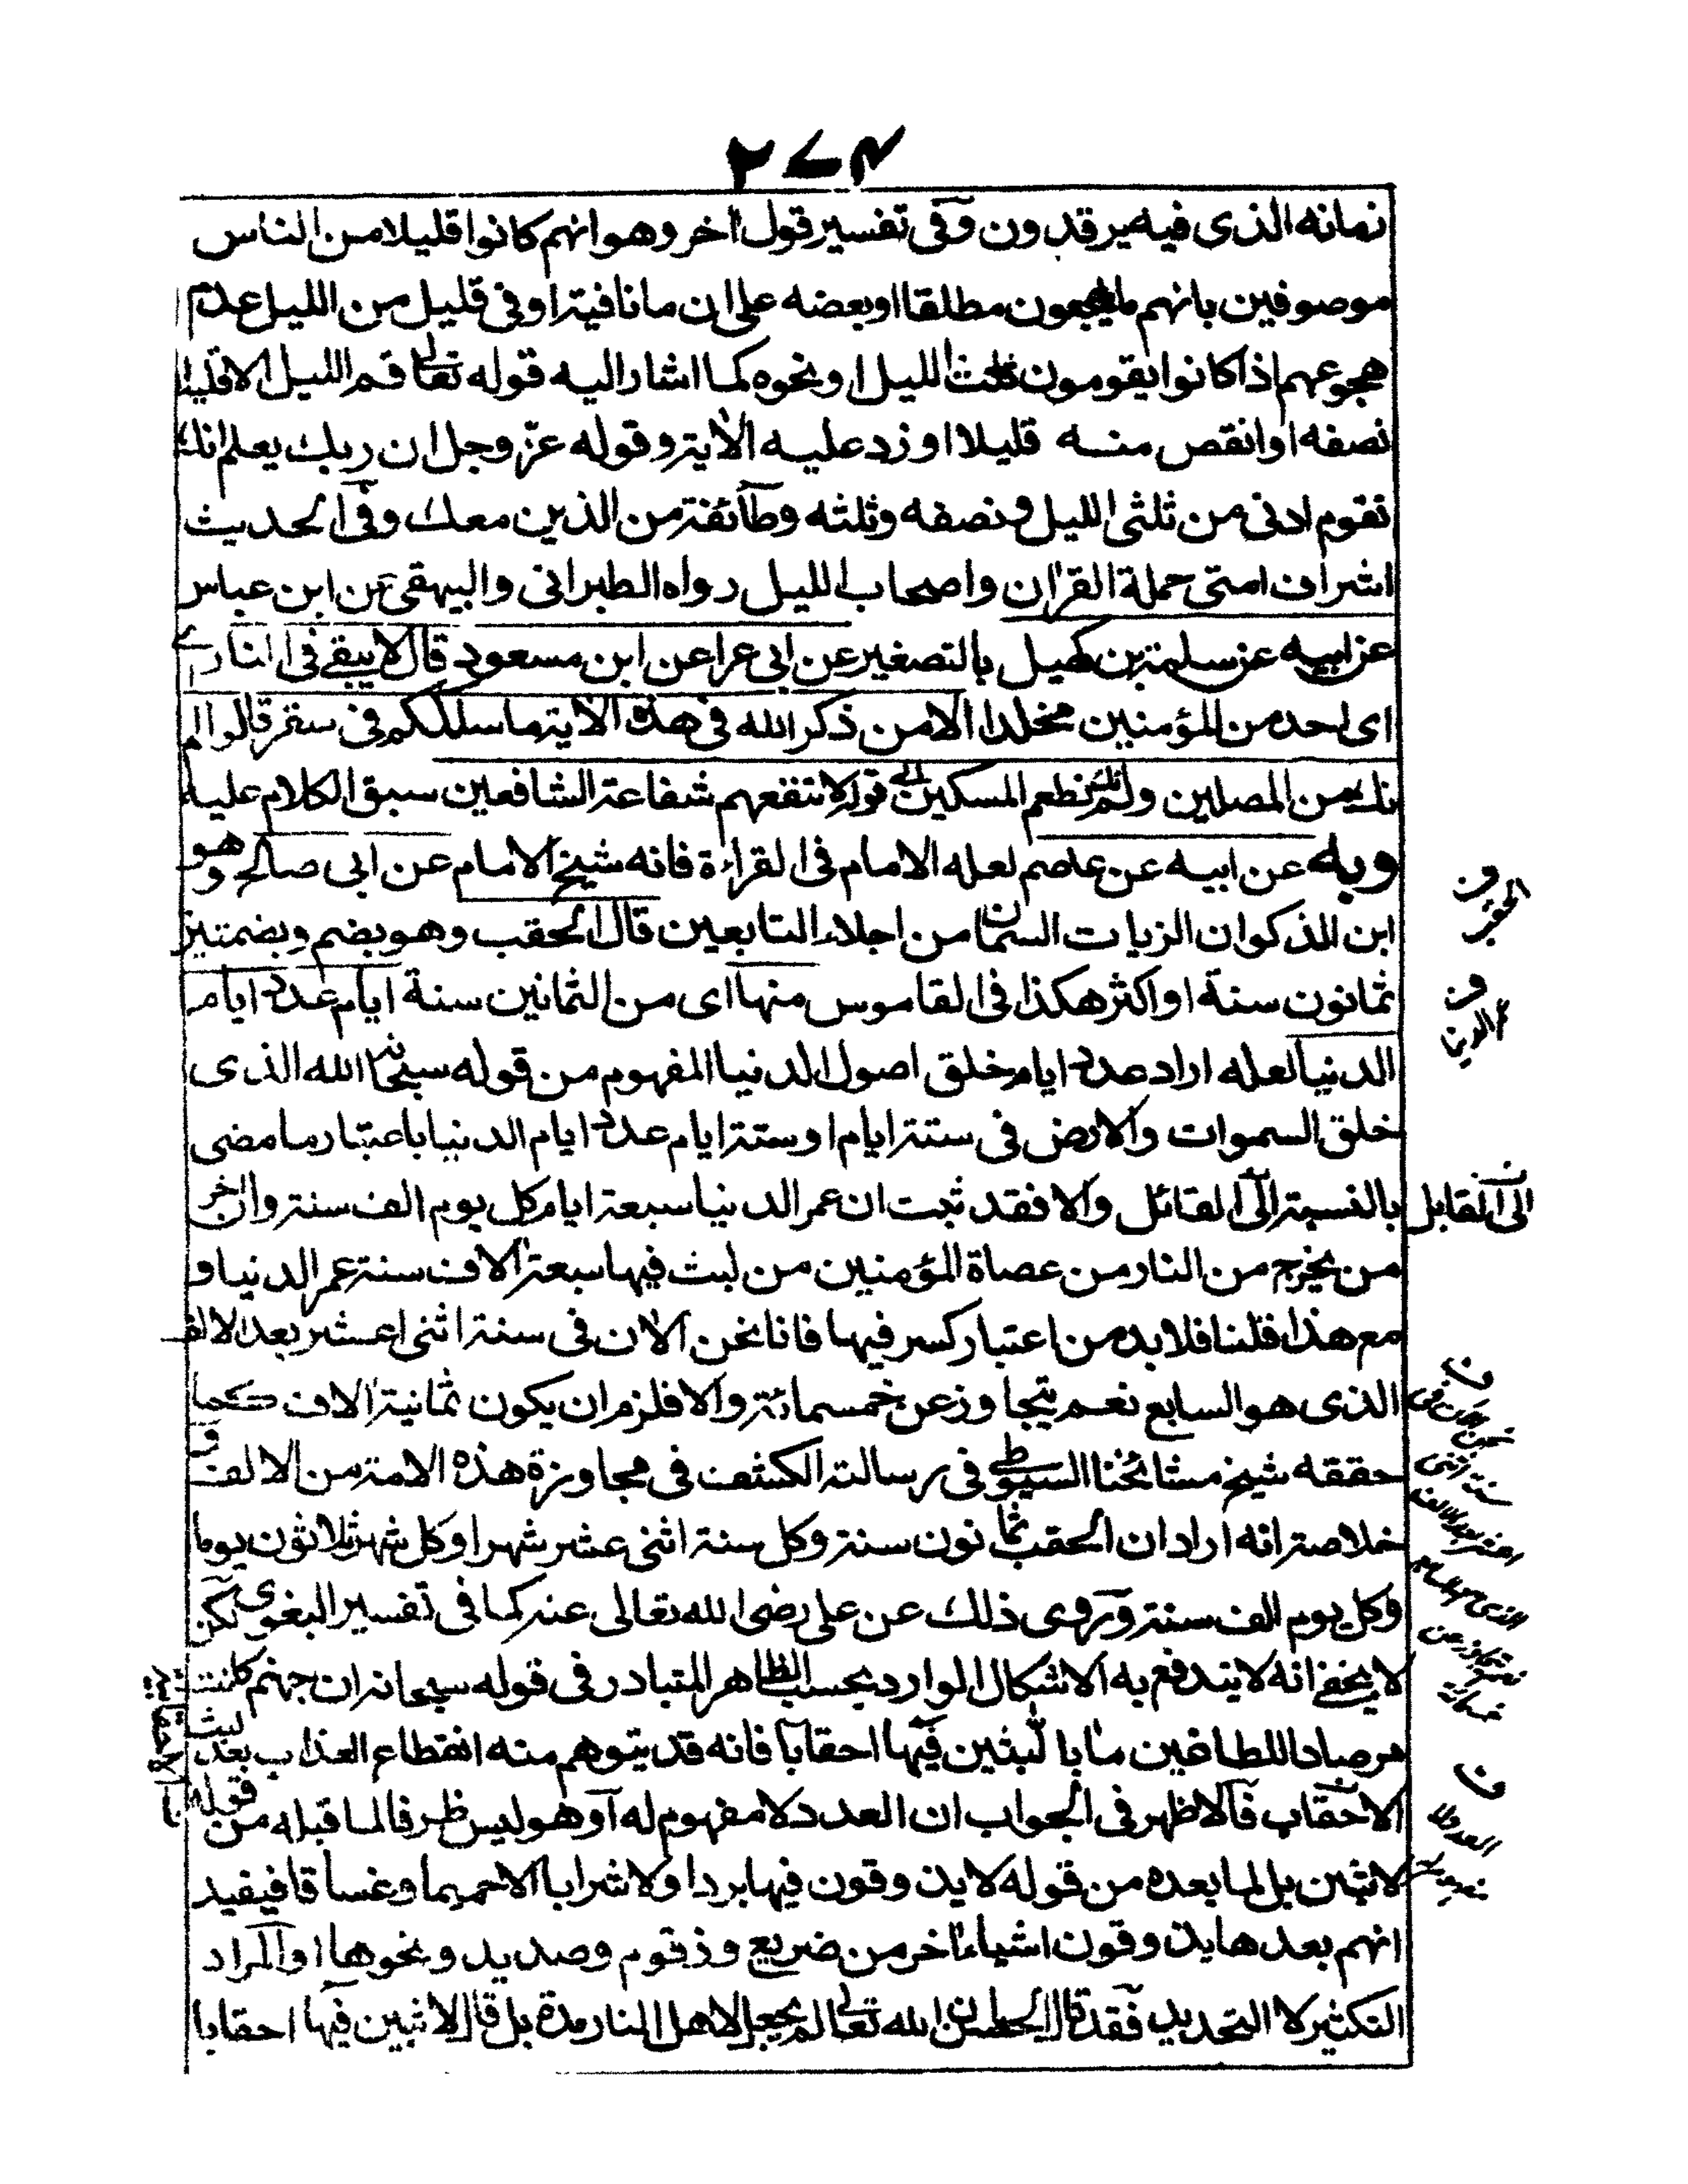 ٢٧٤
زمانه الذى فيه يرقدون وفى تفسير قول اخر وهو انهم كانوا قليلا من الناس
موصوفين بانهم ما يهجعون مطلقا او بعضه على ان ما نافية او فى قليل من الليل عدم
هجوعهم اذا كانوا يقومون ثلث الليل او نحوه كما اشار اليه قوله تعالى قم الليل الا قليلا
نصفه او انقص منه قليلا او زد عليه الاية وقوله عز وجل ان ربك يعلم انك
تقوم ادنى من ثلثى الليل ونصفه وثلثه وطائفة من الذين معك وفى الحديث
اشراف امتى حملة القران واصحاب الليل رواه الطبرانى والبيهقى عن ابن عباس
عن ابيه عن سلمة بن كهيل بالتصغير عن ابى عرا عن ابن مسعود قال لا يبقى فى النار
اى احد من المؤمنين مخلدا الا من ذكر الله فى هذه الاية ما سلككم فى سقر قالوا لم
نك من المصلين ولم نك نطعم المسكين الى قوله لا تنفعهم شفاعة الشافعين سبق الكلام عليه
وبه عن ابيه عن عاصم لعله الامام فى القراءة فانه شيخ الامام عن ابى صالح وهو
ابن الذكوان الزيات السمان من اجلاء التابعين قال الحقب وهو بضم وبضمتين
ثمانون سنة او اكثر هكذا فى القاموس منها اى من الثمانين سنة ايام عدد ايام
الدنيا لعله اراد عدد ايام خلق اصول الدنيا المفهوم من قوله سبحانه الله الذى
خلق السموات والارض فى ستة ايام او ستة ايام عدد ايام الدنيا باعتبار ما مضى
بالنسبة الى القائل والا فقد ثبت ان عمر الدنيا سبعة ايام كل يوم الف سنة وان اخر
من يخرج من النار من عصاة المؤمنين من لبث فيها سبعة الاف سنة عمر الدنيا و
مع هذا قلنا فلا بد من اعتبار كسر فيها فانا نحن الان فى سنة اثنى عشر بعد الالف
الذى هو السابع نعم يتجاوز عن خمسمائة والا فلزم ان يكون ثمانية الاف كما
حققه شيخ مشائخنا السيوطى فى رسالته الكشف فى مجاوزة هذه الامة من الالف و
خلاصته انه اراد ان الحقب ثمانون سنة وكل سنة اثنى عشر شهرا وكل شهر ثلاثون يوما
وكل يوم الف سنة وروى ذلك عن على رضى الله تعالى عنه كما فى تفسير البغوى لكن
لا يخفى انه لا يندفع به الاشكال الوارد بحسب الظاهر المتبادر فى قوله سبحانه ان جهنم كانت
مرصادا للطاغين مابا لبثين فيها احقابا فانه قد يتوهم منه انقطاع العذاب بعد لبث
الاحقاب فالاظهر فى الجواب ان العدد لا مفهوم له او هو ليس ظرفا لما قبله من قوله
لابثين بل لما بعده من قوله لا يذوقون فيها بردا ولا شرابا الا حميما وغساقا فيفيد
انهم بعدها يذوقون اشياء اخر من ضريع وزقوم وصديد ونحوها او المراد
التكثير لا التحديد فقد قال الحسن ان الله تعالى لم يجعل لاهل النار مدة بل قال لابثين فيها احقابا
ن
الحقب
ن
عمر الدنيا
ن
الى المقابل
ن
نحن الان فى
سنة اثنى
بعد الالف
الذى هو السابع
ن
العدد